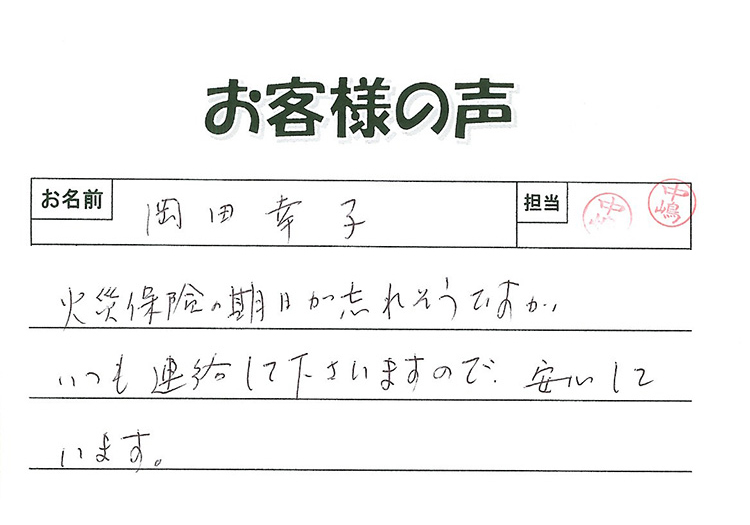 お客様の声
お名前 岡田幸子 担当 中嶋
火災保険の期日が忘れそうですが、
いつも連絡して下さいますので、安心して
います。